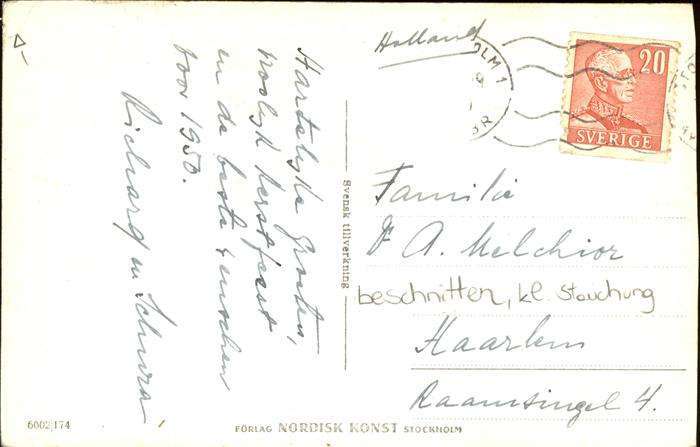 Hartelijke Groeten,
vroolijk kerstfeest
en de beste wenschen
voor 1950.
Richard en
Svensk tillverkning
Holland
20
SVERIGE
Familie
Dr A. Melchior
beschnitten, kl. Stauchung
Haarlem
Raamsingel 4.
6002/174
FÖRLAG NORDISK KONST STOCKHOLM